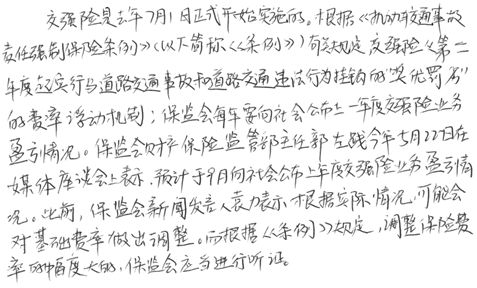 交强险是去年7月1日正式开始实施的。根据《机动车交通事故
责任强制保险条例》(以下简称《条例》)有关规定,交强险从第二
年度起实行与道路交通事故和道路交通违法行为挂钩的"奖优罚劣"
的费率浮动机制;保监会每年要向社会公布上一年度交强险业务
盈亏情况。保监会财产保险监管部主任郭左践今年5月22日在
媒体座谈会上表示,预计于9月向社会公布上年度交强险业务盈亏情
况。此前,保监会新闻发言人袁力表示,根据实际情况,可能会
对基础费率做出调整。而根据《条例》规定,调整保险费
率的幅度大的,保监会应当进行听证。